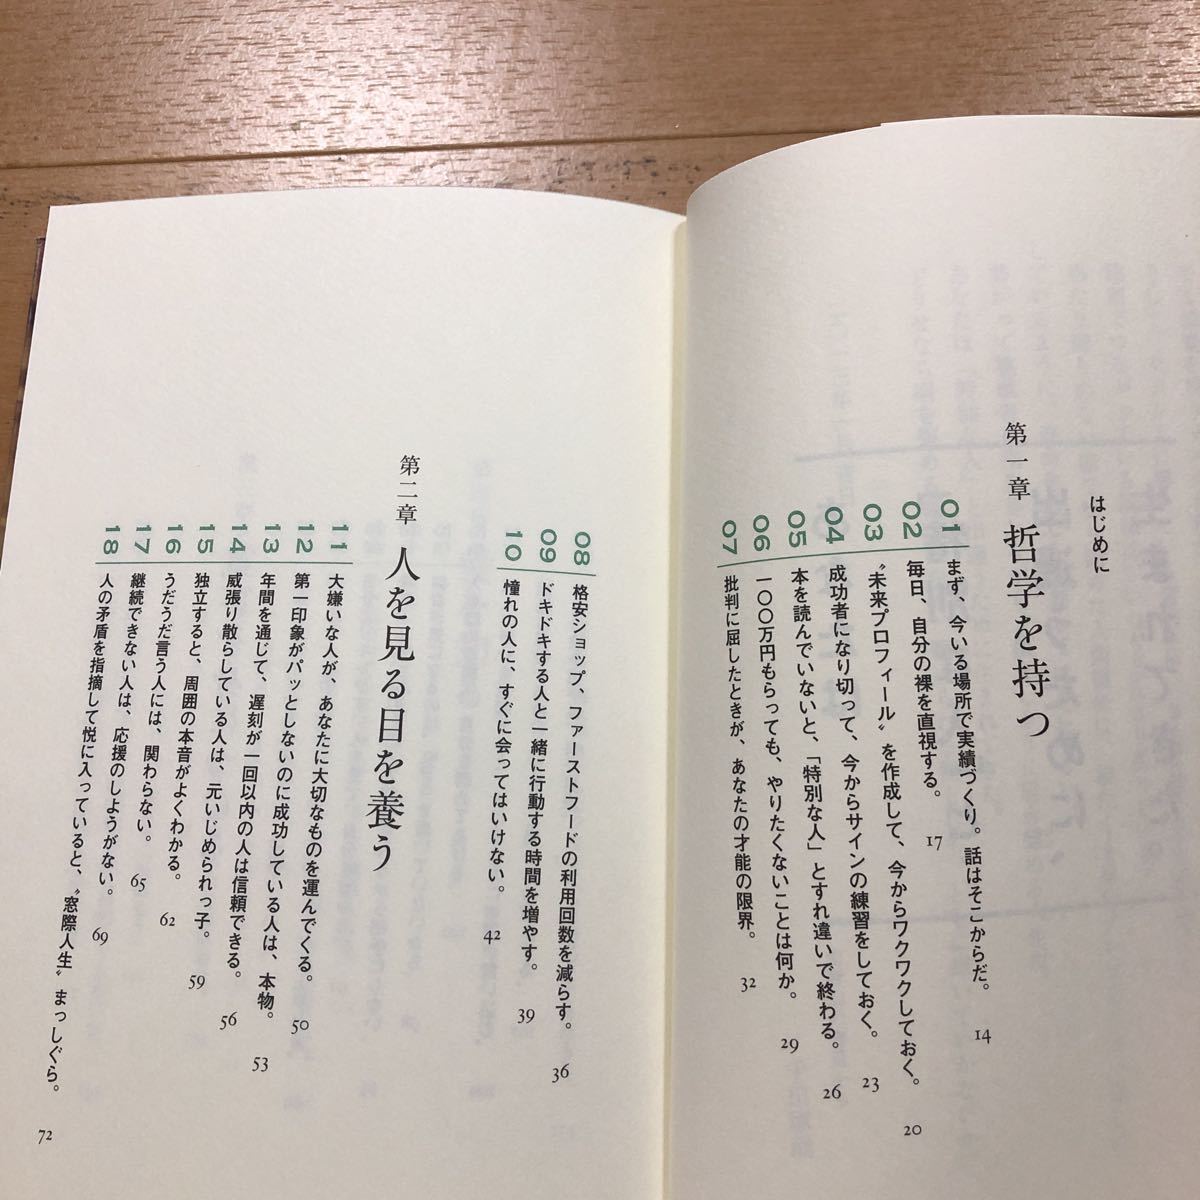 はじめに
第一章 哲学を持つ
01 まず、今いる場所で実績づくり。話はそこからだ。 14
02 毎日、自分の裸を直視する。 17
03 〝未来プロフィール〟を作成して、今からワクワクしておく。 20
04 成功者になり切って、今からサインの練習をしておく。 23
05 本を読んでいないと、「特別な人」とすれ違いで終わる。 26
06 一〇〇万円もらっても、やりたくないことは何か。 29
07 批判に屈したときが、あなたの才能の限界。 32
08 格安ショップ、ファーストフードの利用回数を減らす。 36
09 ドキドキする人と一緒に行動する時間を増やす。 39
10 憧れの人に、すぐに会ってはいけない。 42
第二章 人を見る目を養う
11 大嫌いな人が、あなたに大切なものを運んでくる。 50
12 第一印象がパッとしないのに成功している人は、本物。 53
13 年間を通じて、遅刻が一回以内の人は信頼できる。 56
14 威張り散らしている人は、元いじめられっ子。 59
15 独立すると、周囲の本音がよくわかる。 62
16 うだうだ言う人には、関わらない。 65
17 継続できない人は、応援のしようがない。 69
18 人の矛盾を指摘して悦に入っていると、〝窓際人生〟まっしぐら。 72